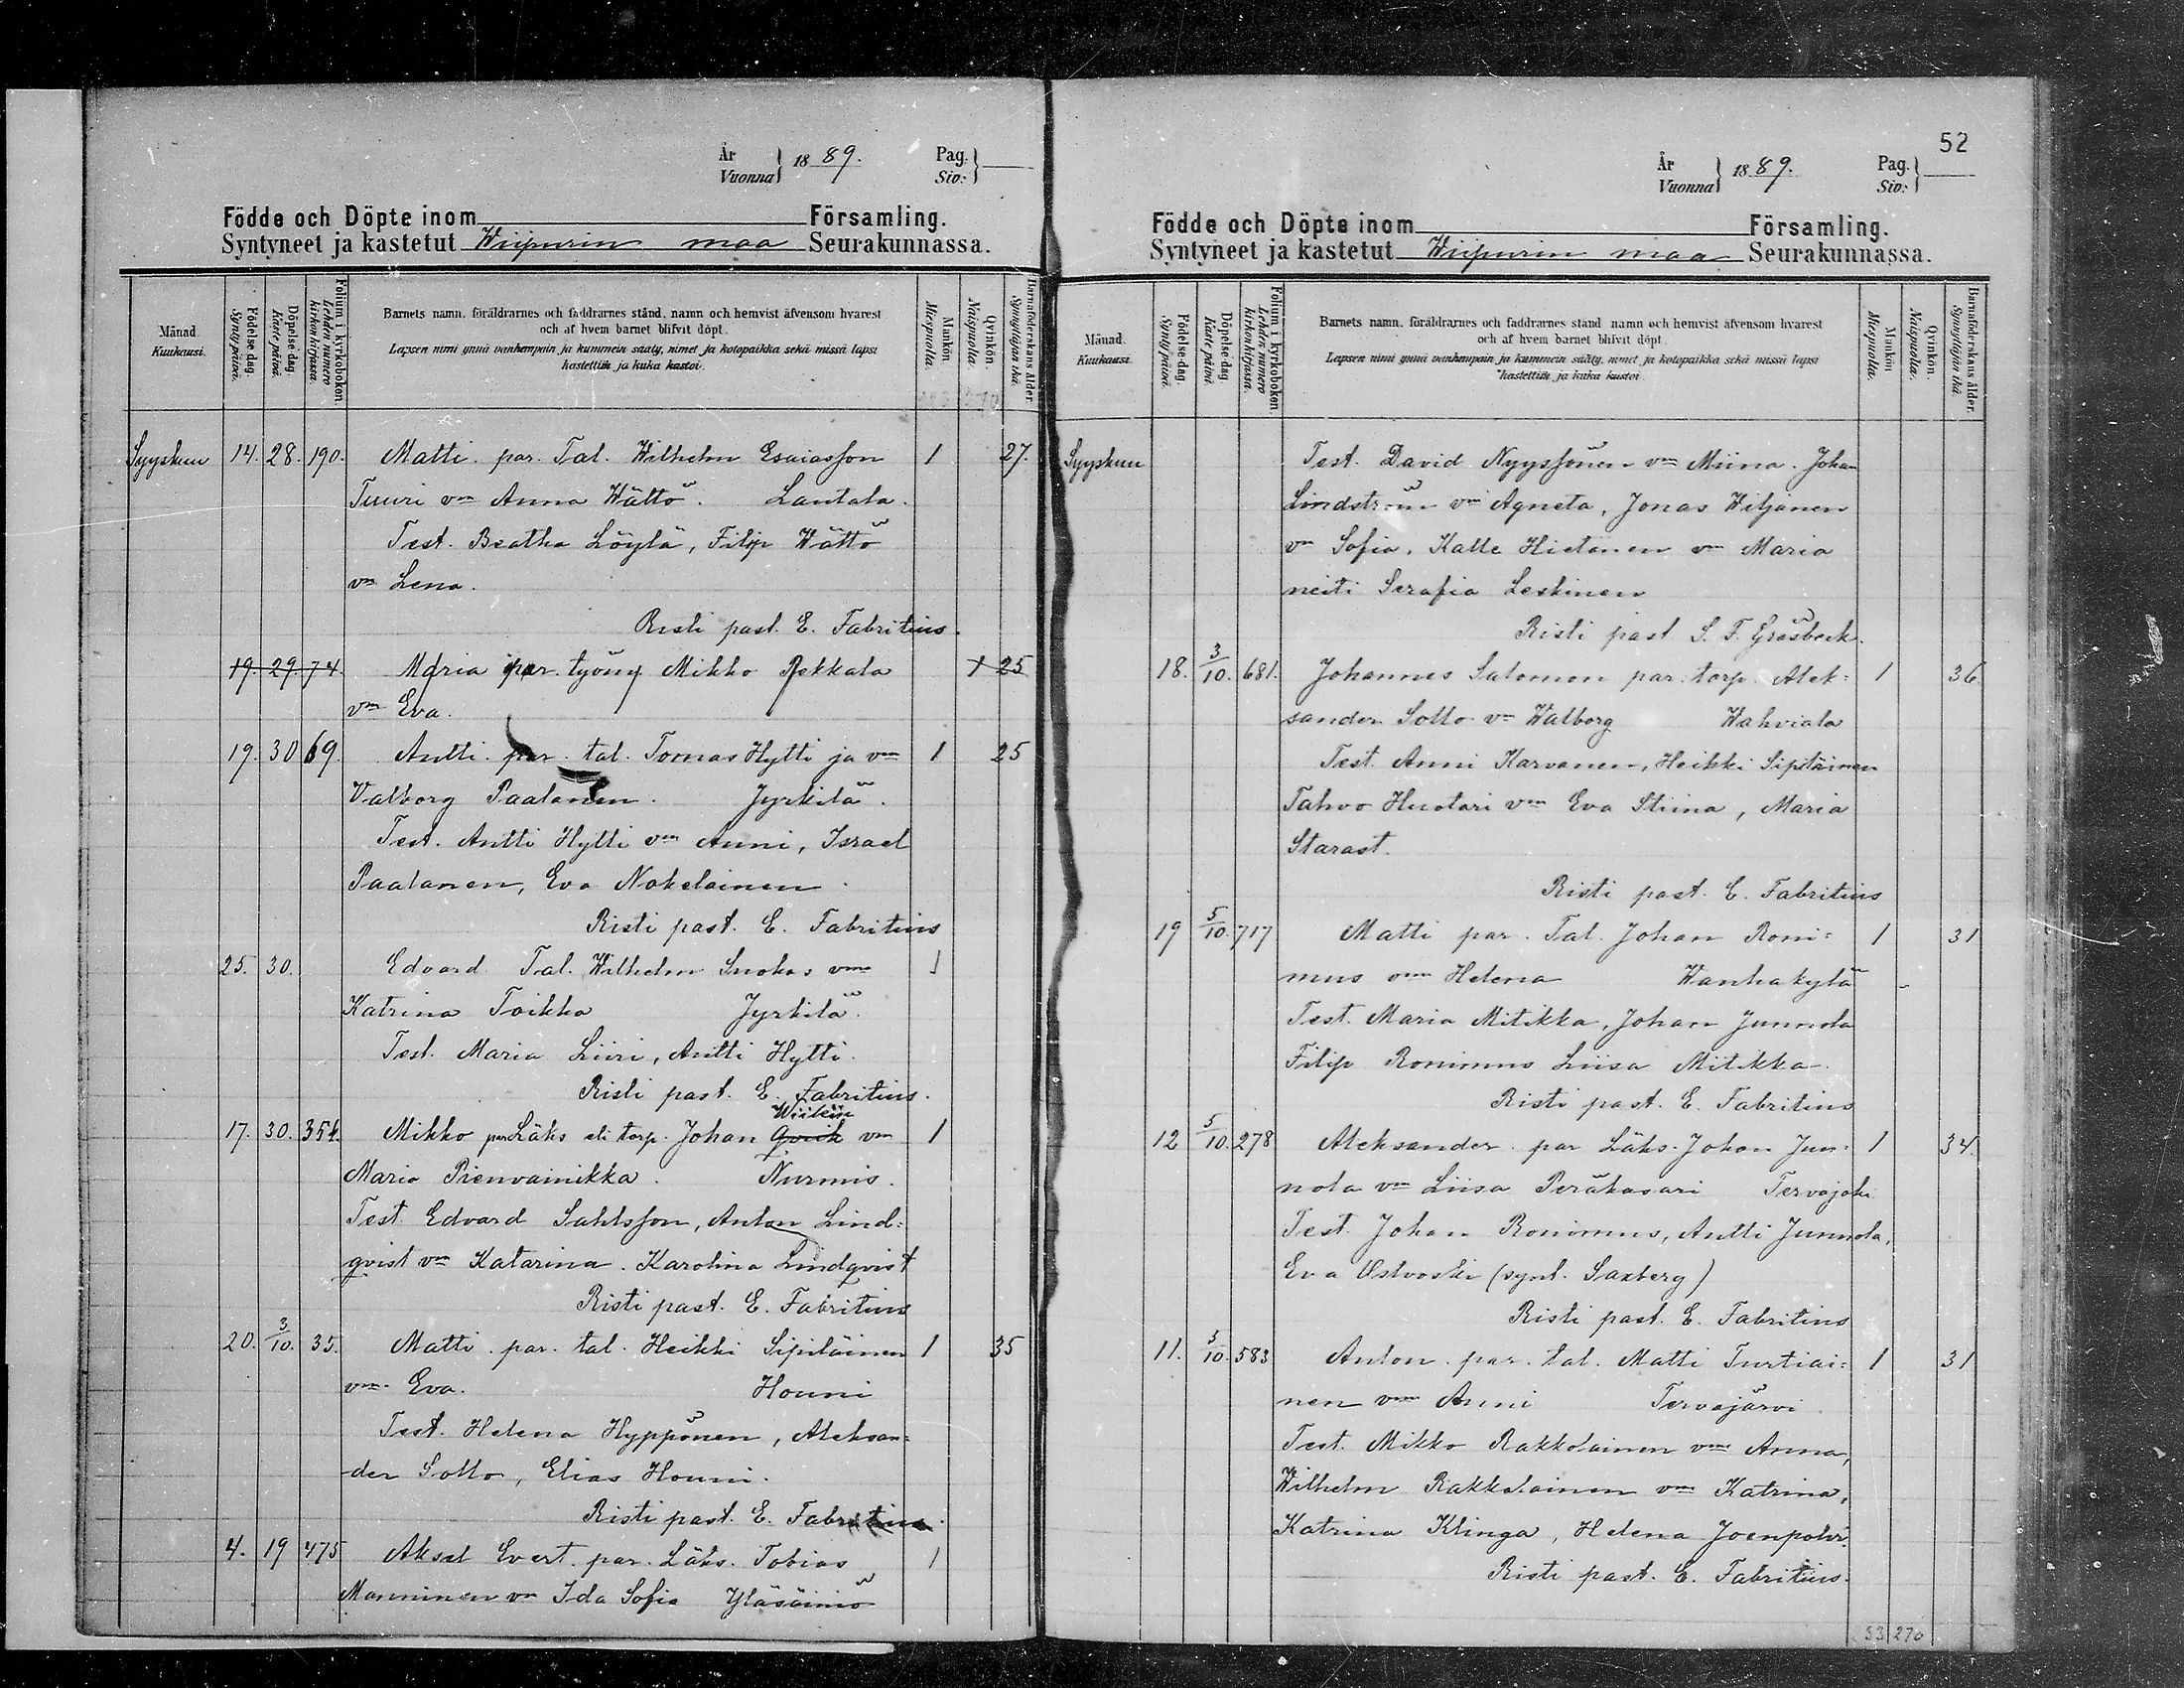 År
Vuonna } 18 89. Pag.
Siv: }
Födde och Döpte inom Församling.
Syntyneet ja kastetut Wiipurin maa Seurakunnassa.
Månad. Kuukausi.
Födelse dag. Synty päivä.
Döpelse dag. Kaste päivä.
Folium i kyrkoboken. Lehden numero kirkonkirjassa.
Barnets namn, föräldrarnes och faddrarnes stånd, namn och hemvist äfvensom hvarest
och af hvem barnet blifvit döpt.
Lapsen nimi ynnä vanhempain ja kummein sääty, nimet ja kotopaikka sekä missä lapsi
kastettiin ja kuka kastoi.
Mankön. Miespuolia.
Qvinkön. Naispuolia.
Barnaföderskans ålder. Synnyttäjän ikä.
Syyskuu 14. 28. 190. Matti. par. Tal. Wilhelm Esaiasson 1 27.
Tuuri vm Anna Wättö. Lantala.
Test. Beatha Löylä, Filip Wättö
vm Lena.
Risti past. E. Fabritius.
19. 29. 74. Maria par. työmy Mikko Pekkala 1 25
vm Eva.
19. 30 69. Antti. par. tal. Tomas Hytti ja vm 1 25
Valborg Paalanen. Jyrkilä.
Test. Antti Hytti vm Anni, Israel
Paalanen, Eva Nokelainen.
Risti past. E. Fabritius
25. 30. Edvard Tal. Wilhelm Snokas vm 1
Katrina Toikka Jyrkilä.
Test. Maria Liiri, Antti Hytti.
Risti past. E. Fabritius.
Wiikin
17. 30. 354. Mikko par Läks eli torp. Johan Qvick vm 1
Maria Pienvainikka. Nurmis.
Test Edvard Sahlsson, Anton Lind-
qvist vm Katarina. Karolina Lindqvist
Risti past. E. Fabritius
20. 3/10. 35. Matti. par. tal. Heikki Sipiläinen 1 35
vm Eva. Houni
Test. Helena Hyppönen, Aleksan-
der Sotto, Elias Houni.
Risti past. E. Fabritius.
4. 19 475 Aksel Evert. par. Läks. Tobias 1
Manninen vm Ida Sofia Yläsäiniö
52
År
Vuonna } 18 89. Pag.
Siv: }
Födde och Döpte inom Församling.
Syntyneet ja kastetut Wiipurin maa Seurakunnassa.
Månad. Kuukausi.
Födelse dag. Synty päivä.
Döpelse dag. Kaste päivä.
Folium i kyrkoboken. Lehden numero kirkonkirjassa.
Barnets namn, föräldrarnes och faddrarnes stånd namn och hemvist äfvensom hvarest
och af hvem barnet blifvit döpt.
Lapsen nimi ynnä vanhempain ja kummein sääty, nimet ja kotopaikka sekä missä lapsi
kastettiin ja kuka kastoi.
Mankön. Miespuolia.
Qvinkön. Naispuolia.
Barnaföderskans ålder. Synnyttäjän ikä.
Syyskuu Test. David Nyyssönen vm Miina. Johan
Lindström vm Agneta, Jonas Wiljanen
vm Sofia. Kalle Hietanen vm Maria
neiti Serafia Leskinen
Risti past S. F. Gråsbeck.
18. 3/10. 681. Johannes Salomon par. torp. Alek- 1 36
sander Sotto vm Walborg Wahviala
Test. Anni Karvanen, Heikki Sipiläinen
Tahvo Huotari vm Eva Stiina, Maria
Starast.
Risti past. E. Fabritius
19 5/10. 717 Matti par. Tal. Johan Roni- 1 31
mus vm Helena Wanhakylä
Test. Maria Mitikka, Johan Junnola
Filip Ronimus Liisa Mitikka.
Risti past. E. Fabritius
12 5/10. 278 Aleksander par Läks. Johan Jun- 1 34.
nola vm Liisa Peräkasari Tervajoki
Test. Johan Ronimus, Antti Junnola,
Eva Ostvoski (synt. Saxberg)
Risti past. E. Fabritius
11. 5/10. 583 Anton. par. tal. Matti Turtiai- 1 31
nen vm Anni Tervajärvi.
Test. Mikko Rakkolainen vm Anna,
Wilhelm Rakkolainen vm Katrina,
Katrina Klinga, Helena Joenpolvi.
Risti past. E. Fabritius.
53 270